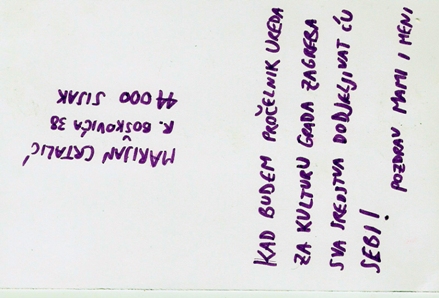 KAD BUDEM PROČELNIK UREDA
ZA KULTURU GRADA ZAGREBA
SVA SREDSTVA DODJELJIVAT ĆU
SEBI!
POZDRAV MAMI I MENI
MARIJAN CRTALIĆ
R. BOŠKOVIĆA 38
44 000 SISAK